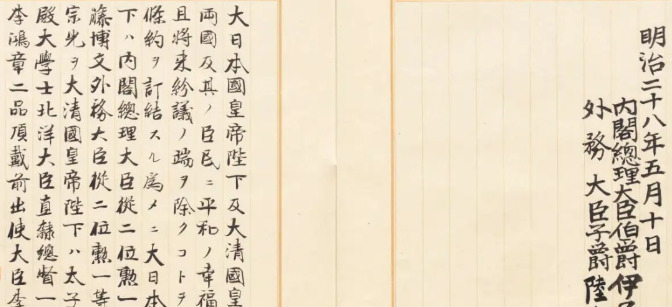 明治二十八年五月十日
内閣總理大臣伯爵伊
外務大臣子爵陸
大日本國皇帝陛下及大清國皇
兩國及其ノ臣民ニ平和ノ幸福
且將來紛議ノ端ヲ除クコトヲ
條約ヲ訂結スル爲メニ大日本
下ハ內閣總理大臣從二位勲一
藤博文外務大臣從二位勲一等
宗光ヲ大清國皇帝陛下ハ太子
殿大學士北洋大臣直隸總督一
李鴻章二品頂戴前出使大臣李